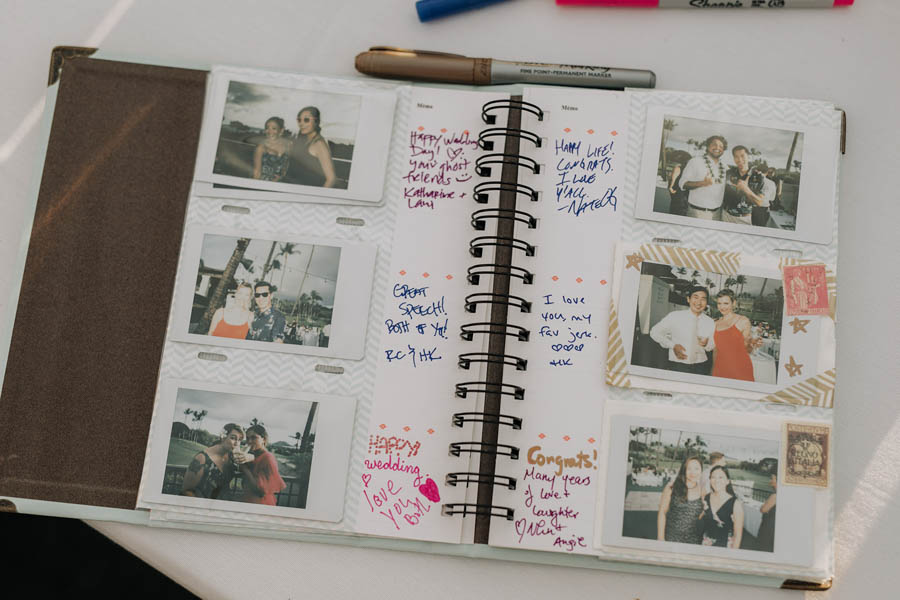 Sharpie
FINE POINT-PERMANENT MARKER
Memo
HAPPY Wedding
Day! ♡
your ghost
friends
Katharine +
GREAT
SPEECH!
BOTH of Ya!
RC & HK
HAPPY
wedding
love
you
Both
Memo
HAPPY LIFE!
CONGRATS.
I LOVE
Y'ALL
I love
you, my
fav jere.
♡♡♡♡
HK
Congrats!
Many years
of love +
laughter
Angie